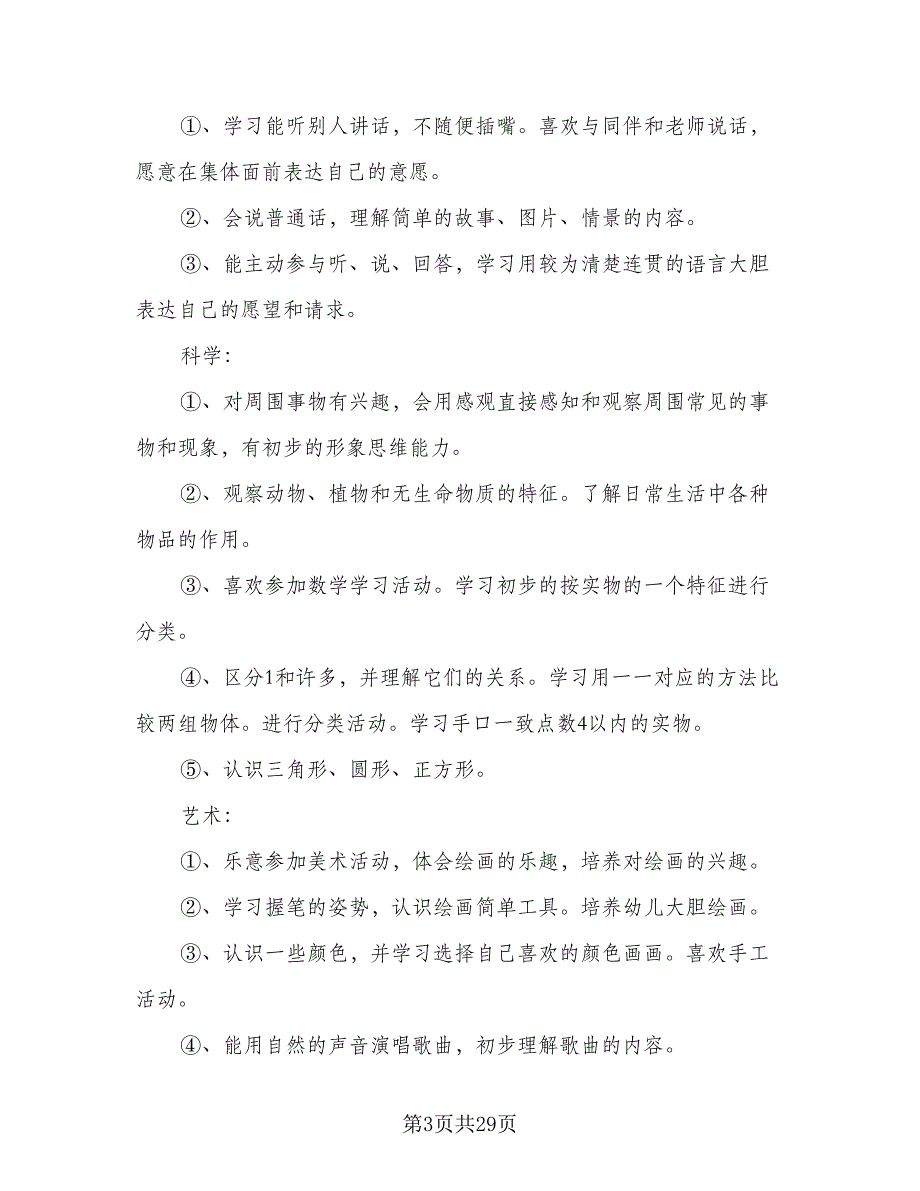 ①、学习能听别人讲话，不随便插嘴。喜欢与同伴和老师说话，
愿意在集体面前表达自己的意愿。
②、会说普通话，理解简单的故事、图片、情景的内容。
③、能主动参与听、说、回答，学习用较为清楚连贯的语言大胆
表达自己的愿望和请求。
科学：
①、对周围事物有兴趣，会用感观直接感知和观察周围常见的事
物和现象，有初步的形象思维能力。
②、观察动物、植物和无生命物质的特征。了解日常生活中各种
物品的作用。
③、喜欢参加数学学习活动。学习初步的按实物的一个特征进行
分类。
④、区分1和许多，并理解它们的关系。学习用一一对应的方法比
较两组物体。进行分类活动。学习手口一致点数4以内的实物。
⑤、认识三角形、圆形、正方形。
艺术：
①、乐意参加美术活动，体会绘画的乐趣，培养对绘画的兴趣。
②、学习握笔的姿势，认识绘画简单工具。培养幼儿大胆绘画。
③、认识一些颜色，并学习选择自己喜欢的颜色画画。喜欢手工
活动。
④、能用自然的声音演唱歌曲，初步理解歌曲的内容。
第3页共29页